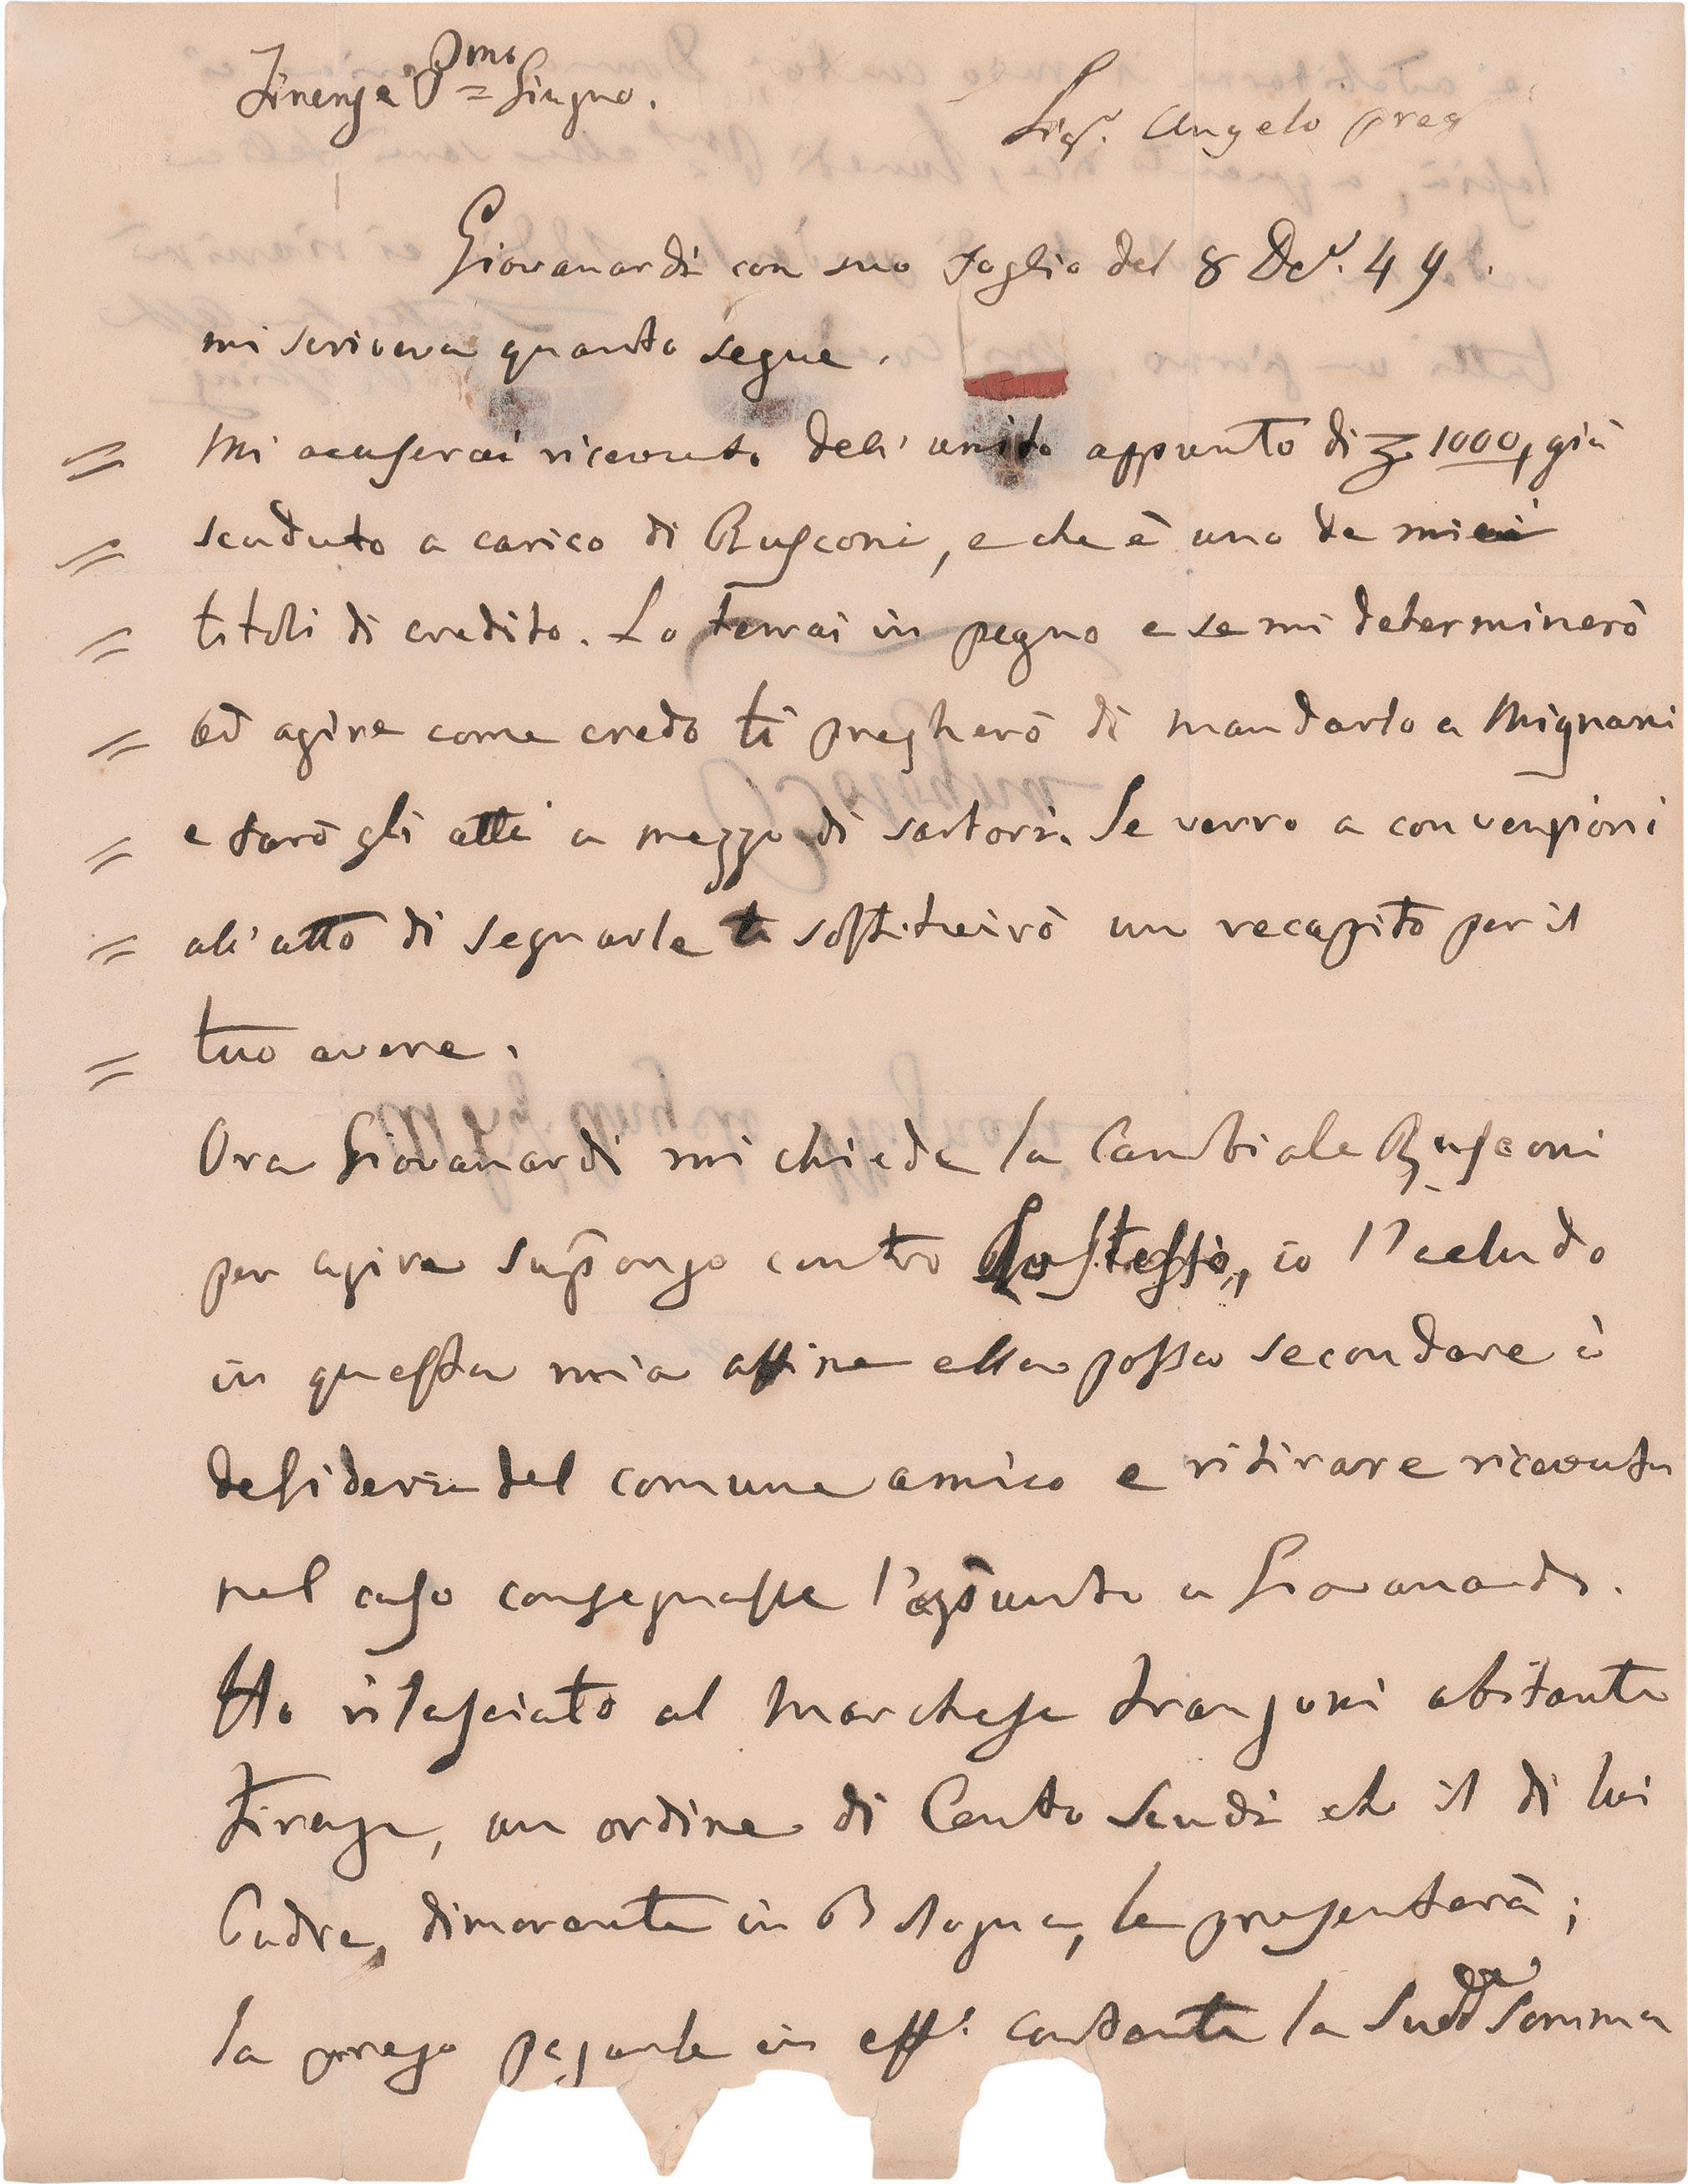 Firenze Pmo = Giugno.
Sigr. Angelo preg
Giovanardi con suo foglio del 8 De. 49.
mi scriveva quanto segue.
= Mi accuserai ricevuta dell'unito appunto di 1000, già
= scaduto a carico di Rusconi, e che è uno de miei
= titoli di credito. Lo terrai in pegno e se mi determinerò
= ad agire come credo ti pregherò di mandarlo a Mignani
= e farò gli atti a mezzo di Sartori. Se verrò a convenzioni
= all'atto di segnarle ti sostituirò un recapito per il
= tuo avere.
Ora Giovanardi mi chiede la Cambiale Rusconi
per agire supongo contro lo stesso, io l'acludo
in questa mia affine ella possa secondare i
desideri del comune amico e ritirare ricevuta
nel caso consegnasse l'apunto a Giovanardi.
Ho rilasciato al Marchese Frangoni abitante
Firenze, un ordine di Cento Scudi che il di lui
Padre, dimorante in Bologna, le presenterà;
la prego pagarle in effi contante la Sudda Somma